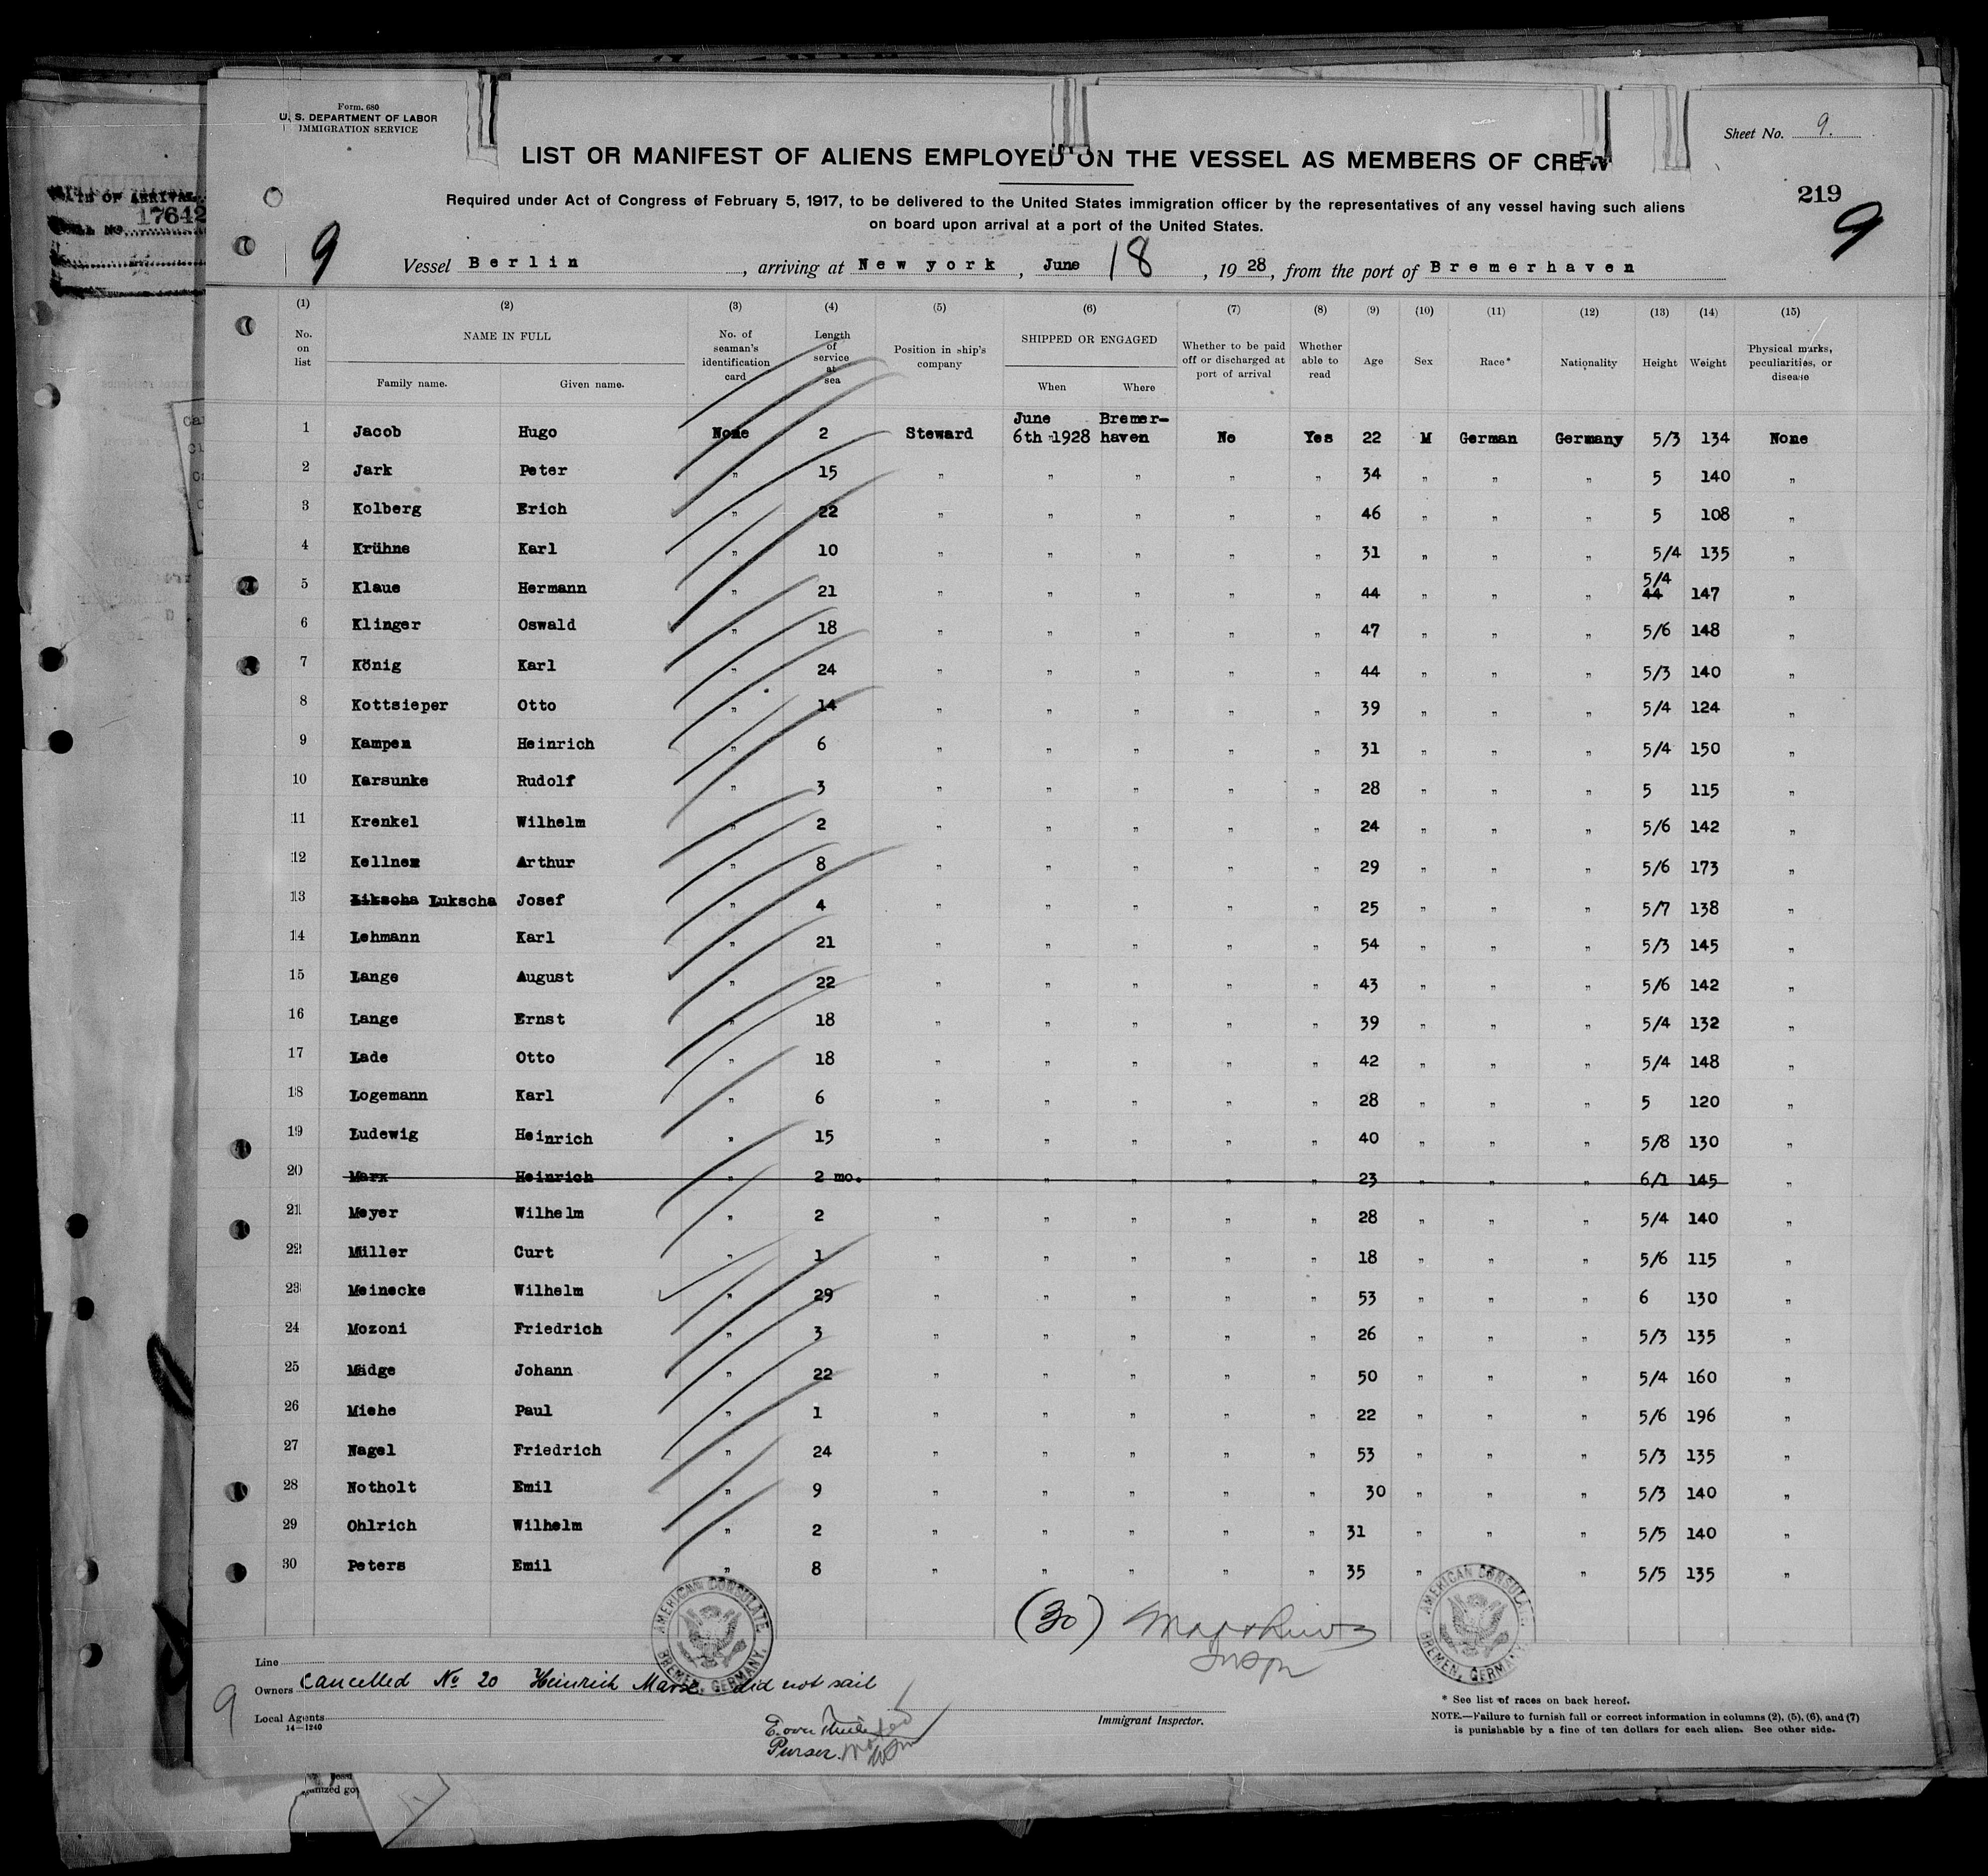 Form. 680
U. S. DEPARTMENT OF LABOR
IMMIGRATION SERVICE
Sheet No. 9.
LIST OR MANIFEST OF ALIENS EMPLOYED ON THE VESSEL AS MEMBERS OF CREW
Required under Act of Congress of February 5, 1917, to be delivered to the United States immigration officer by the representatives of any vessel having such aliens
on board upon arrival at a port of the United States.
219
9
9
Vessel Berlin, arriving at New york, June 18, 1928, from the port of Bremerhaven
17642
(1) (2) (3) (4) (5) (6) (7) (8) (9) (10) (11) (12) (13) (14) (15)
No. on list NAME IN FULL Family name. Given name. No. of seaman's identification card Length of service at sea Position in ship's company SHIPPED OR ENGAGED When Where Whether to be paid off or discharged at port of arrival Whether able to read Age Sex Race* Nationality Height Weight Physical marks, peculiarities, or disease
1 Jacob Hugo None 2 Steward June 6th 1928 Bremer-haven No Yes 22 M German Germany 5/3 134 None
2 Jark Peter " 15 " " " " " 34 " " " 5 140 "
3 Kolberg Erich " 22 " " " " " 46 " " " 5 108 "
4 Krühne Karl " 10 " " " " " 31 " " " 5/4 135 "
5 Klaue Hermann " 21 " " " " " 44 " " " 5/4 44 147 "
6 Klinger Oswald " 18 " " " " " 47 " " " 5/6 148 "
7 König Karl " 24 " " " " " 44 " " " 5/3 140 "
8 Kottsieper Otto " 14 " " " " " 39 " " " 5/4 124 "
9 Kampen Heinrich " 6 " " " " " 31 " " " 5/4 150 "
10 Karsunke Rudolf " 3 " " " " " 28 " " " 5 115 "
11 Krenkel Wilhelm " 2 " " " " " 24 " " " 5/6 142 "
12 Kellner Arthur " 8 " " " " " 29 " " " 5/6 173 "
13 Likscha Lukscha Josef " 4 " " " " " 25 " " " 5/7 138 "
14 Lehmann Karl " 21 " " " " " 54 " " " 5/3 145 "
15 Lange August " 22 " " " " " 43 " " " 5/6 142 "
16 Lange Ernst " 18 " " " " " 39 " " " 5/4 132 "
17 Lade Otto " 18 " " " " " 42 " " " 5/4 148 "
18 Logemann Karl " 6 " " " " " 28 " " " 5 120 "
19 Ludewig Heinrich " 15 " " " " " 40 " " " 5/8 130 "
20 Marx Heinrich " 2 mo. " " " " " 23 " " " 6/1 145 "
21 Meyer Wilhelm " 2 " " " " " 28 " " " 5/4 140 "
22 Müller Curt " 1 " " " " " 18 " " " 5/6 115 "
23 Meinecke Wilhelm " 29 " " " " " 53 " " " 6 130 "
24 Mozoni Friedrich " 3 " " " " " 26 " " " 5/3 135 "
25 Mädge Johann " 22 " " " " " 50 " " " 5/4 160 "
26 Miehe Paul " 1 " " " " " 22 " " " 5/6 196 "
27 Nagel Friedrich " 24 " " " " " 53 " " " 5/3 135 "
28 Notholt Emil " 9 " " " " " 30 " " " 5/3 140 "
29 Ohlrich Wilhelm " 2 " " " " " 31 " " " 5/5 140 "
30 Peters Emil " 8 " " " " " 35 " " " 5/5 135 "
AMERICAN CONSULATE BREMEN, GERMANY.
(30)
Insp
AMERICAN CONSULATE BREMEN, GERMANY.
Line
Owners Cancelled No 20 Heinrich Marx did not sail
Local Agents
14—1240
9
Purser.
Immigrant Inspector.
* See list of races on back hereof.
NOTE.—Failure to furnish full or correct information in columns (2), (5), (6), and (7)
is punishable by a fine of ten dollars for each alien. See other side.